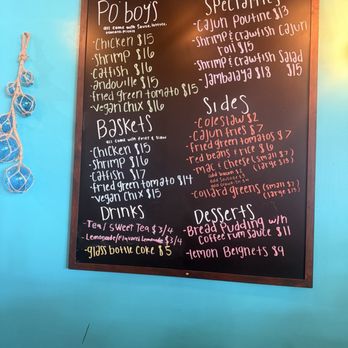 Po'boys
all come with sauce, lettuce,
-Chicken $15
-Shrimp $16
-Catfish $16
-andouille $15
-fried green tomato $15
-vegan chix $16
Baskets
all come with fries & slaw
-Chicken $15
-Shrimp $16
-Catfish $17
-fried green tomato $14
-vegan chix $15
Drinks
-Tea/Sweet Tea $3/4
-Lemonade/Flavored Lemonade $3/4
-glass bottle coke $5
Specialties
-Cajun Poutine $13
-Shrimp & Crawfish Cajun
roll $15
-Shrimp & Crawfish Salad
$15
-Jambalaya $18
Sides
-Coleslaw $2
-Cajun fries $7
-fried green tomatoes $7
-red beans & rice $6
-mac & cheese (small $7)
(large $13)
add bacon $2
-collard greens (small $7)
(large $13)
Desserts
-Bread Pudding w/h
coffee rum sauce $11
-lemon Beignets $9